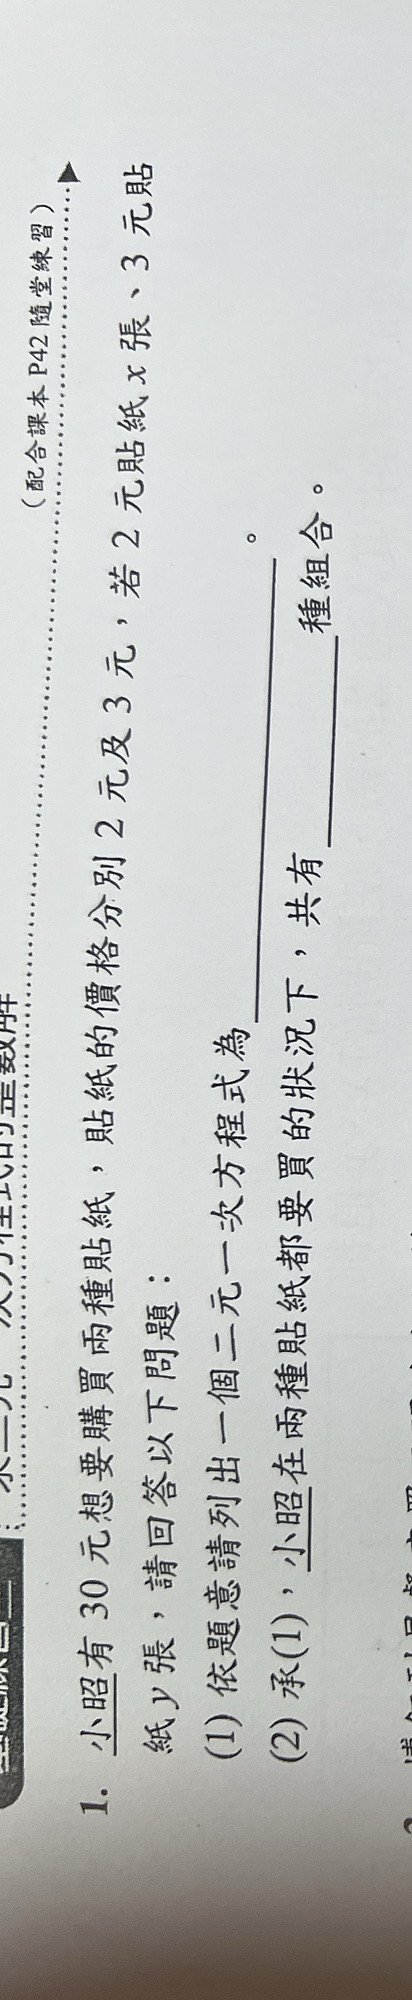 求二元一次方程式的整數解
（配合課本 P42 隨堂練習）
1. 小昭有 30 元想要購買兩種貼紙，貼紙的價格分別 2 元及 3 元，若 2 元貼紙 x 張、3 元貼
紙 y 張，請回答以下問題：
(1) 依題意請列出一個二元一次方程式為＿＿＿＿＿＿。
(2) 承(1)，小昭在兩種貼紙都要買的狀況下，共有＿＿＿＿種組合。